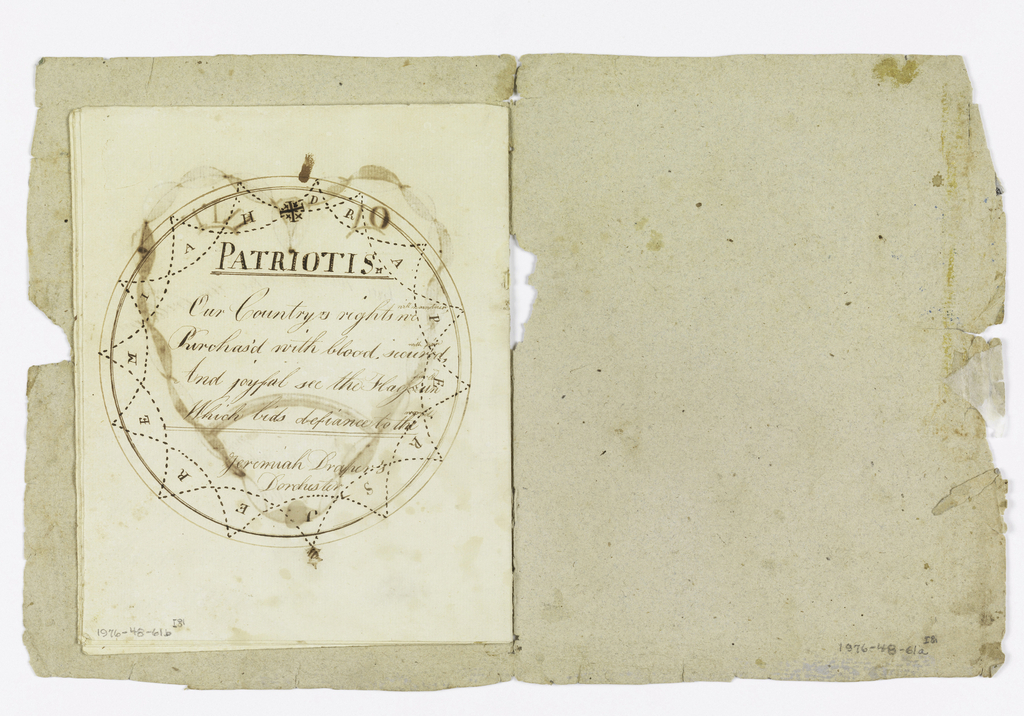 JEREMIAH DRAPERS
PATRIOTIS.m
Our Country,s rights we
Purchas'd with blood, secured,
And joyful see the Flag un
Which bids defiance to the
Jeremiah Draper,s
Dorchester
1976-48-61b
1976-48-61a